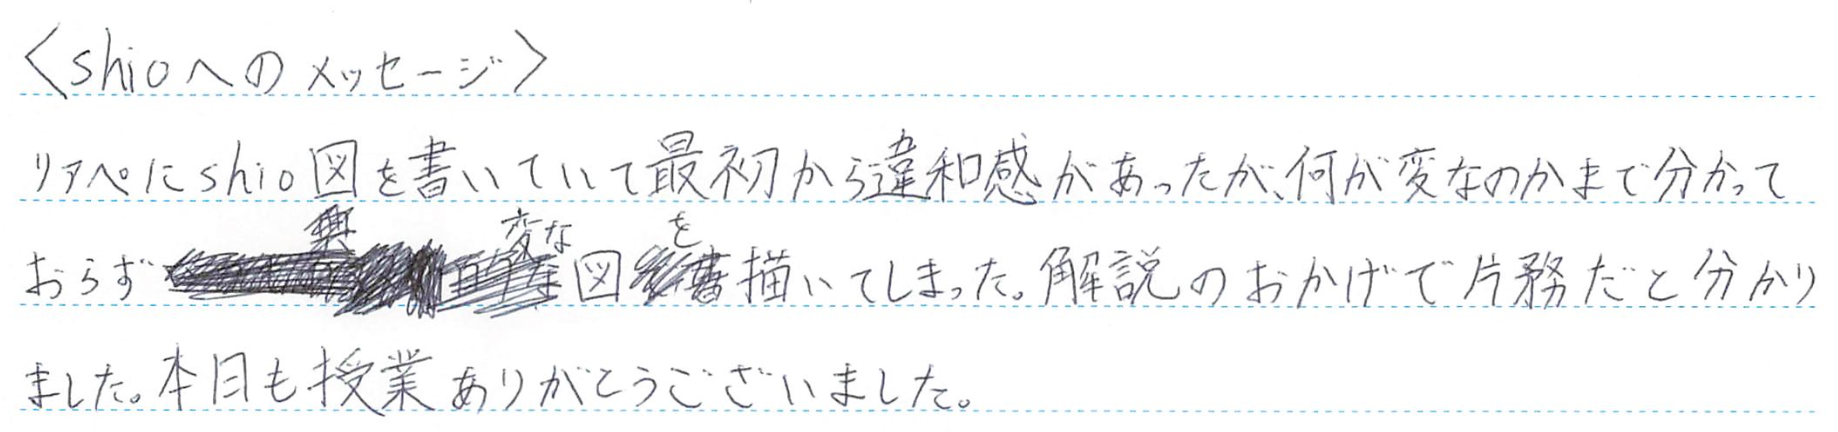 〈shioへのメッセージ〉
リアペにshio図を書いていて最初から違和感があったが、何が変なのかまで分かって
おらず変な図を描いてしまった。解説のおかげで片務だと分かり
ました。本日も授業ありがとうございました。